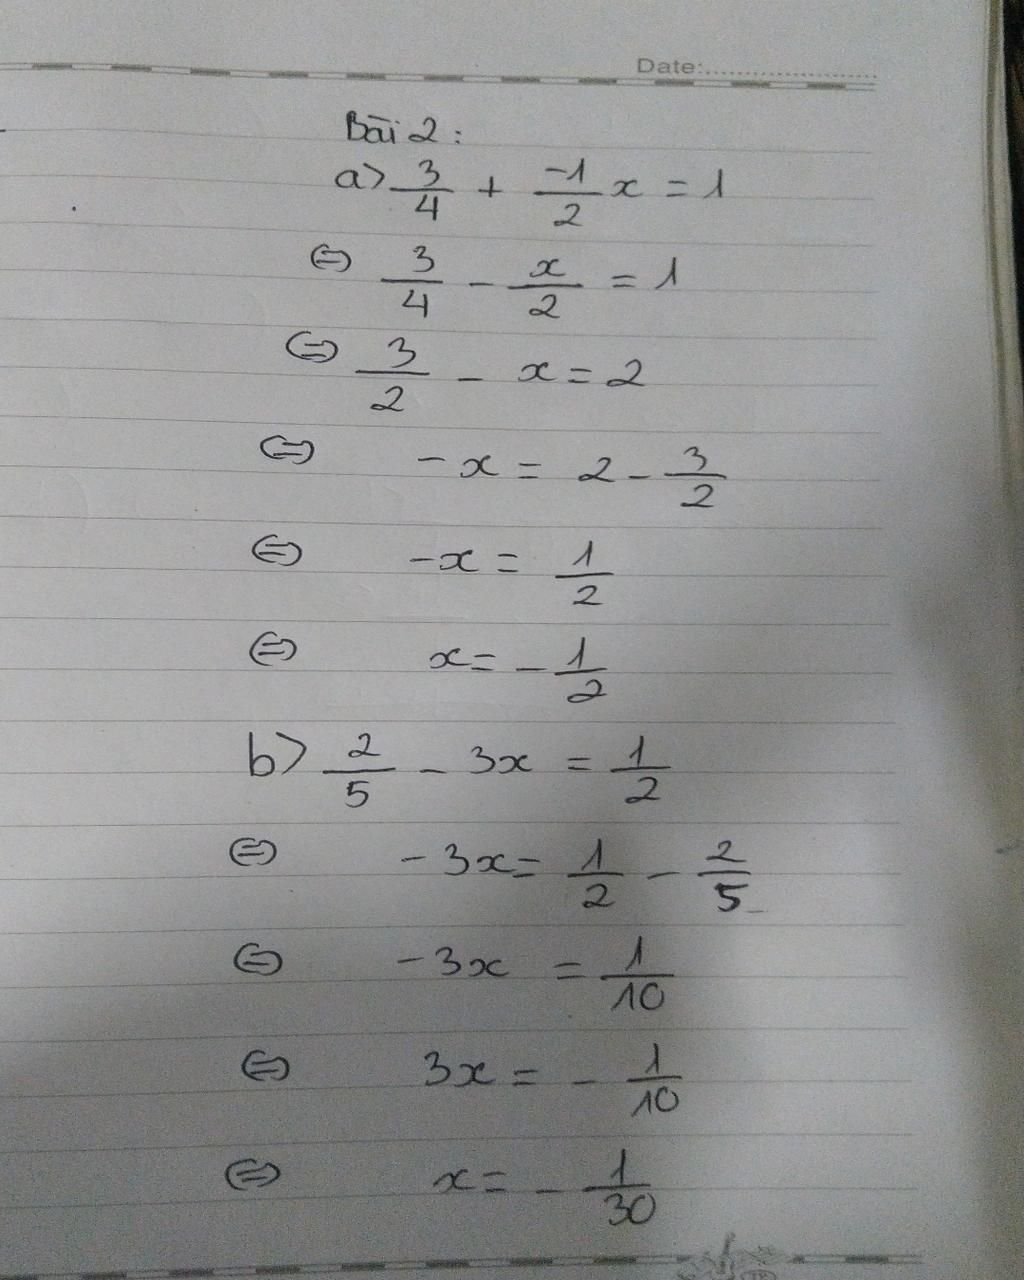 Date:
Bài 2:
a> 3/4 + -1/2 x = 1
⇔ 3/4 - x/2 = 1
⇔ 3/2 - x = 2
⇔ -x = 2 - 3/2
⇔ -x = 1/2
⇔ x = - 1/2
b> 2/5 - 3x = 1/2
⇔ -3x = 1/2 - 2/5
⇔ -3x = 1/10
⇔ 3x = - 1/10
⇔ x = - 1/30